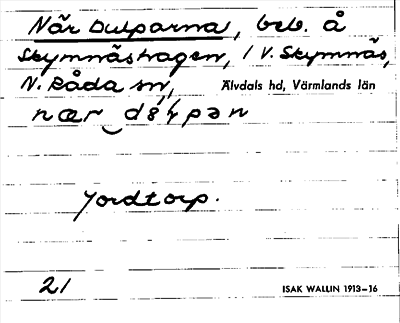 När Dulparna, beb. å
Skymnäshagen, / V. Skymnäs,
N. Råda sn, Älvdals hd, Värmlands län
Jordtorp.
21 ISAK WALLIN 1913–16